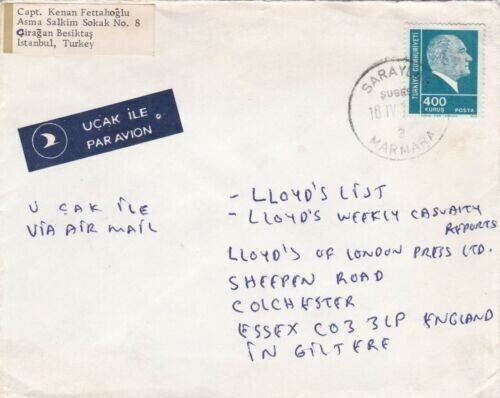 Capt. Kenan Fettahoğlu
Asma Salkim Sokak No. 8
Çirağan Beşiktaş
Istanbul, Turkey
TÜRKİYE CUMHURİYETİ
400
KURUŞ POSTA
MARMARA
3
UÇAK İLE
PAR AVION
U ÇAK İLE
VIA AIR MAIL
- LLOYD'S LIST
- LLOYD'S WEEKLY CASUALTY
REPORTS
LLOYD'S OF LONDON PRESS LTD.
SHEEPEN ROAD
COLCHESTER
ESSEX CO3 3LP ENGLAND
İN GİLTERE